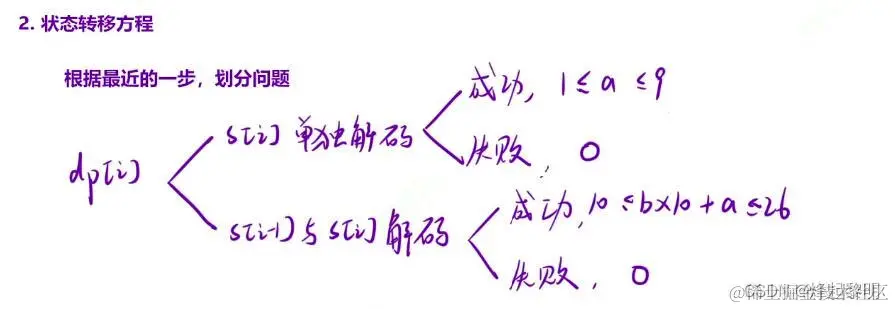 2. 状态转移方程
根据最近的一步，划分问题
成功, 1 ≤ a ≤ 9
s[i] 单独解码
失败, 0
dp[i]
成功, 10 ≤ b×10 + a ≤ 26
s[i-1] 与 s[i] 解码
失败, 0